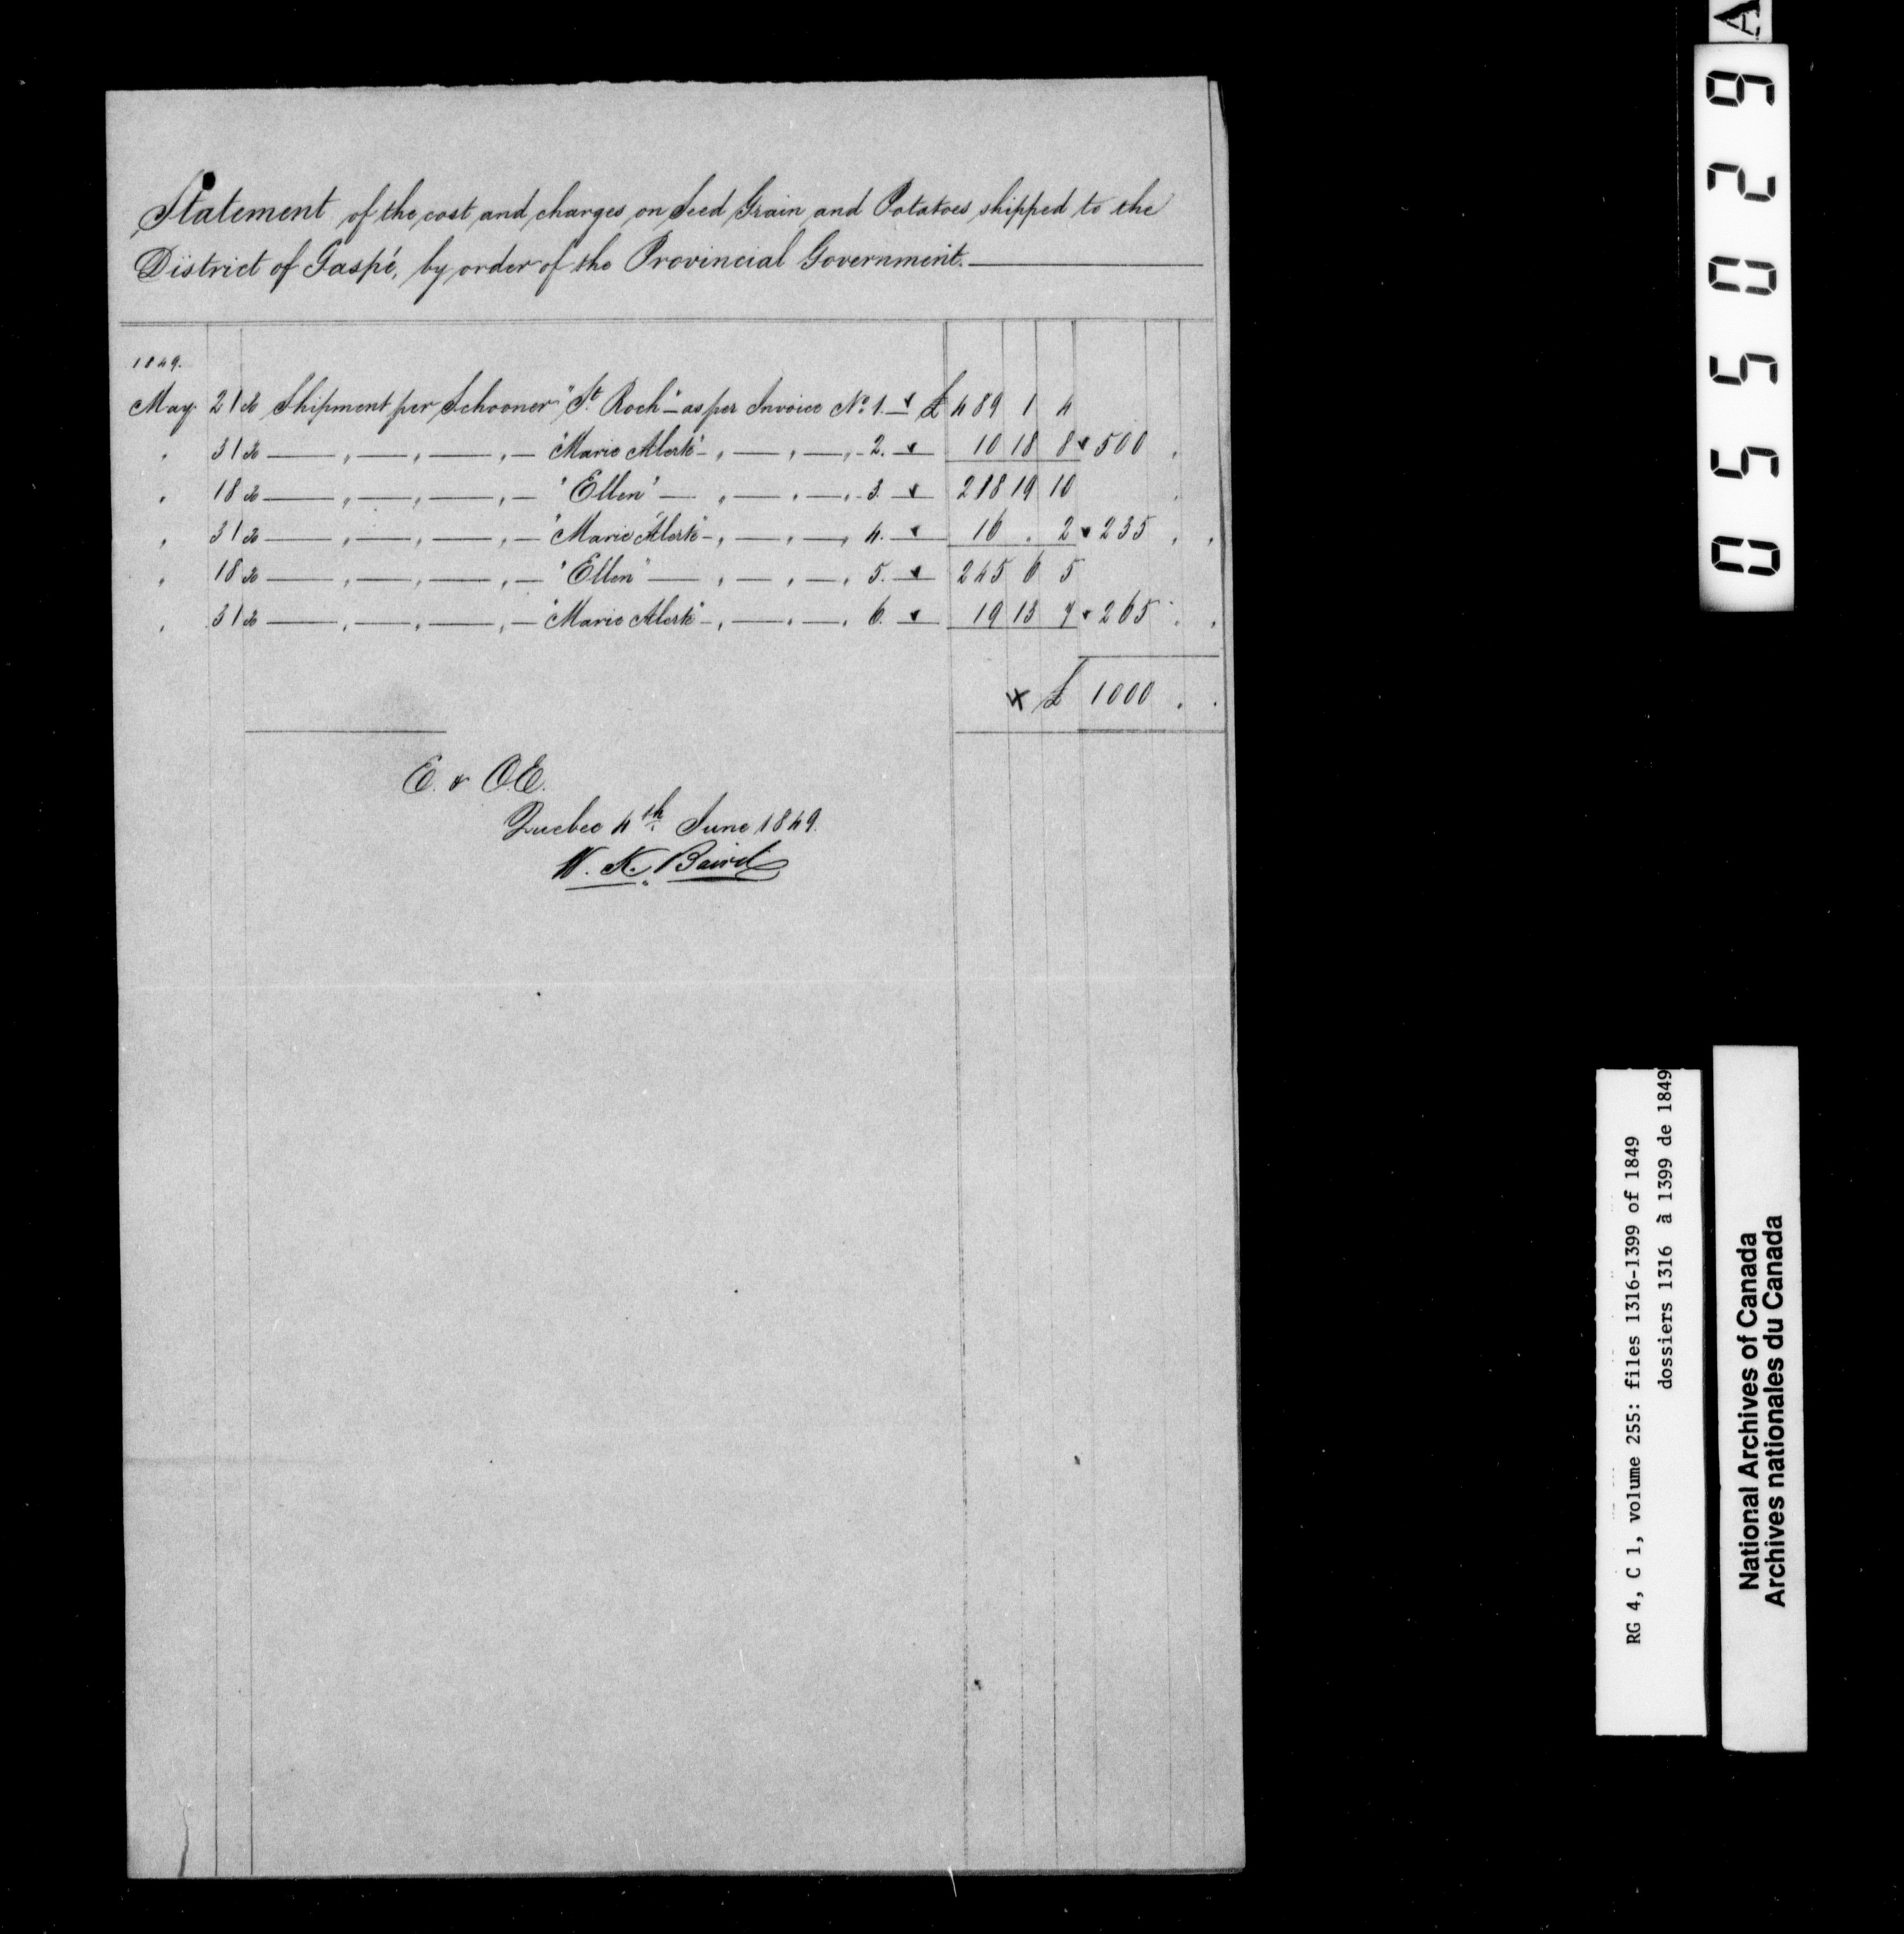 Statement of the cost and charges on Seed Grain and Potatoes shipped to the
District of Gaspé, by order of the Provincial Government.
1849.
May 21 Shipment per Schooner "St. Roch" as per Invoice No. 1. £ 489 1 4
" 31 " " " "Marie Alerte" " " " 2. 10 18 8 500 "
" 18 " " " "Ellen" " " " 3. 218 19 10
" 31 " " " "Marie Alerte" " " " 4. 16 " 2 235 " "
" 18 " " " "Ellen" " " " 5. 245 6 5
" 31 " " " "Marie Alerte" " " " 6. 19 13 7 265 " "
£ 1000 . .
E. & O.E.
Quebec 4th June 1849.
W. K. Baird
055029
A
RG 4, C 1, volume 255: files 1316-1399 of 1849
dossiers 1316 à 1399 de 1849
National Archives of Canada
Archives nationales du Canada